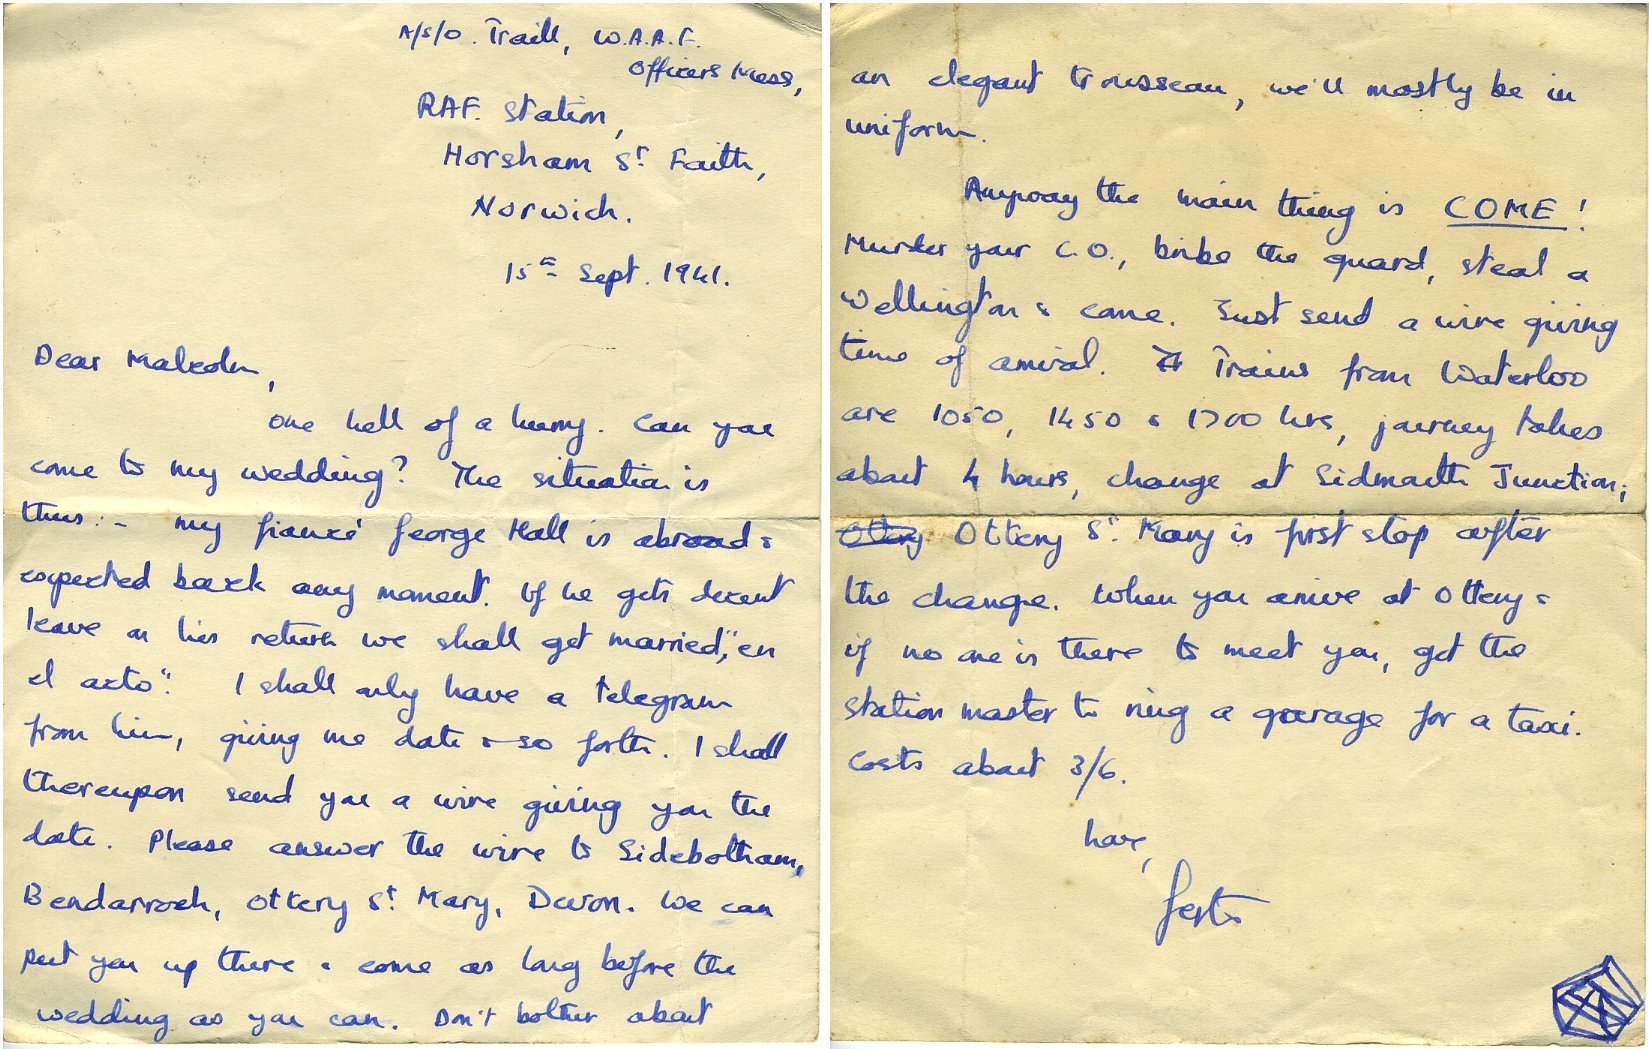 A/S/O. Traill, W.A.A.F.
Officers Mess,
RAF. Station,
Horsham St Faith,
Norwich.
15th Sept. 1941.
Dear Malcolm,
One hell of a hurry. Can you
come to my wedding? The situation is
thus:- my fiancé George Hall is abroad &
expected back any moment. If he gets decent
leave on his return we shall get married, "en
el acto". I shall only have a telegram
from him, giving me date & so forth. I shall
thereupon send you a wire giving you the
date. Please answer the wire to Sidebotham,
Bendarroch, Ottery St. Mary, Devon. We can
put you up there & come as long before the
wedding as you can. Don't bother about
an elegant trousseau, we'll mostly be in
uniform.
Anyway the main thing is COME!
Murder your C.O., bribe the guard, steal a
Wellington & come. Just send a wire giving
time of arrival. Trains from Waterloo
are 1050, 1450 & 1700 hrs, journey takes
about 4 hours, change at Sidmouth Junction;
Ottery Ottery St. Mary is first stop after
the change. When you arrive at Ottery &
if no one is there to meet you, get the
station master to ring a garage for a taxi.
Costs about 3/6.
Love,